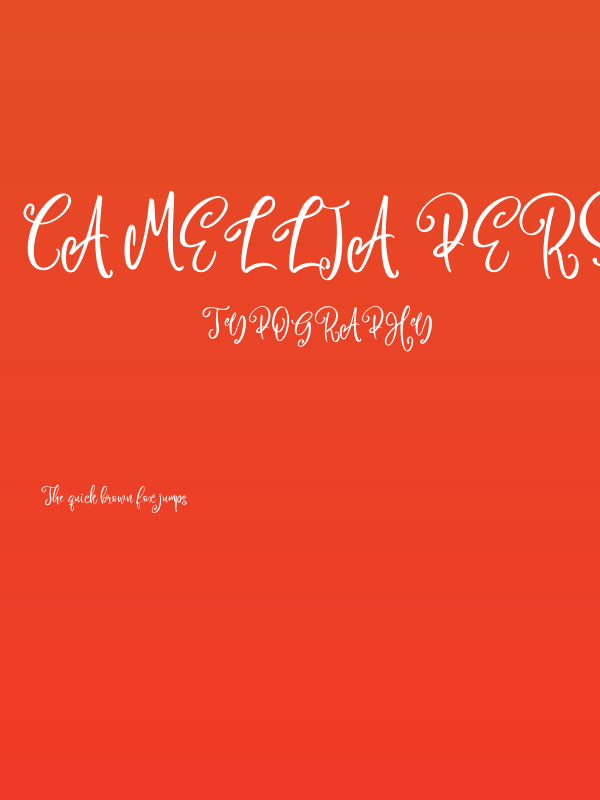 CAMELLIA PERS
TYPOGRAPHY
The quick brown fox jumps